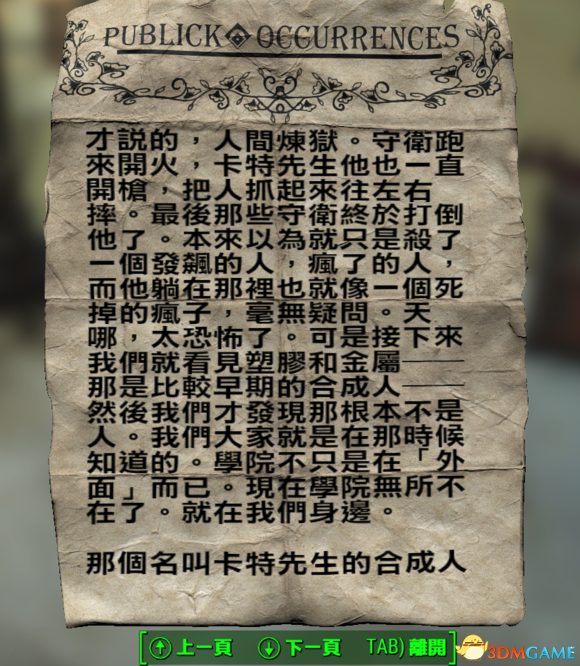 PUBLICK OCCURRENCES
才說的，人間煉獄。守衛跑
來開火，卡特先生他也一直
開槍，把人抓起來往左右
摔。最後那些守衛終於打倒
他了。本來以為就只是殺了
一個發飆的人，瘋了的人，
而他躺在那裡也就像一個死
掉的瘋子，毫無疑問。天
哪，太恐怖了。可是接下來
我們就看見塑膠和金屬——
那是比較早期的合成人——
然後我們才發現那根本不是
人。我們大家就是在那時候
知道的。學院不只是在「外
面」而已。現在學院無所不
在了。就在我們身邊。
那個名叫卡特先生的合成人
上一頁 下一頁 TAB) 離開
3DMGAME